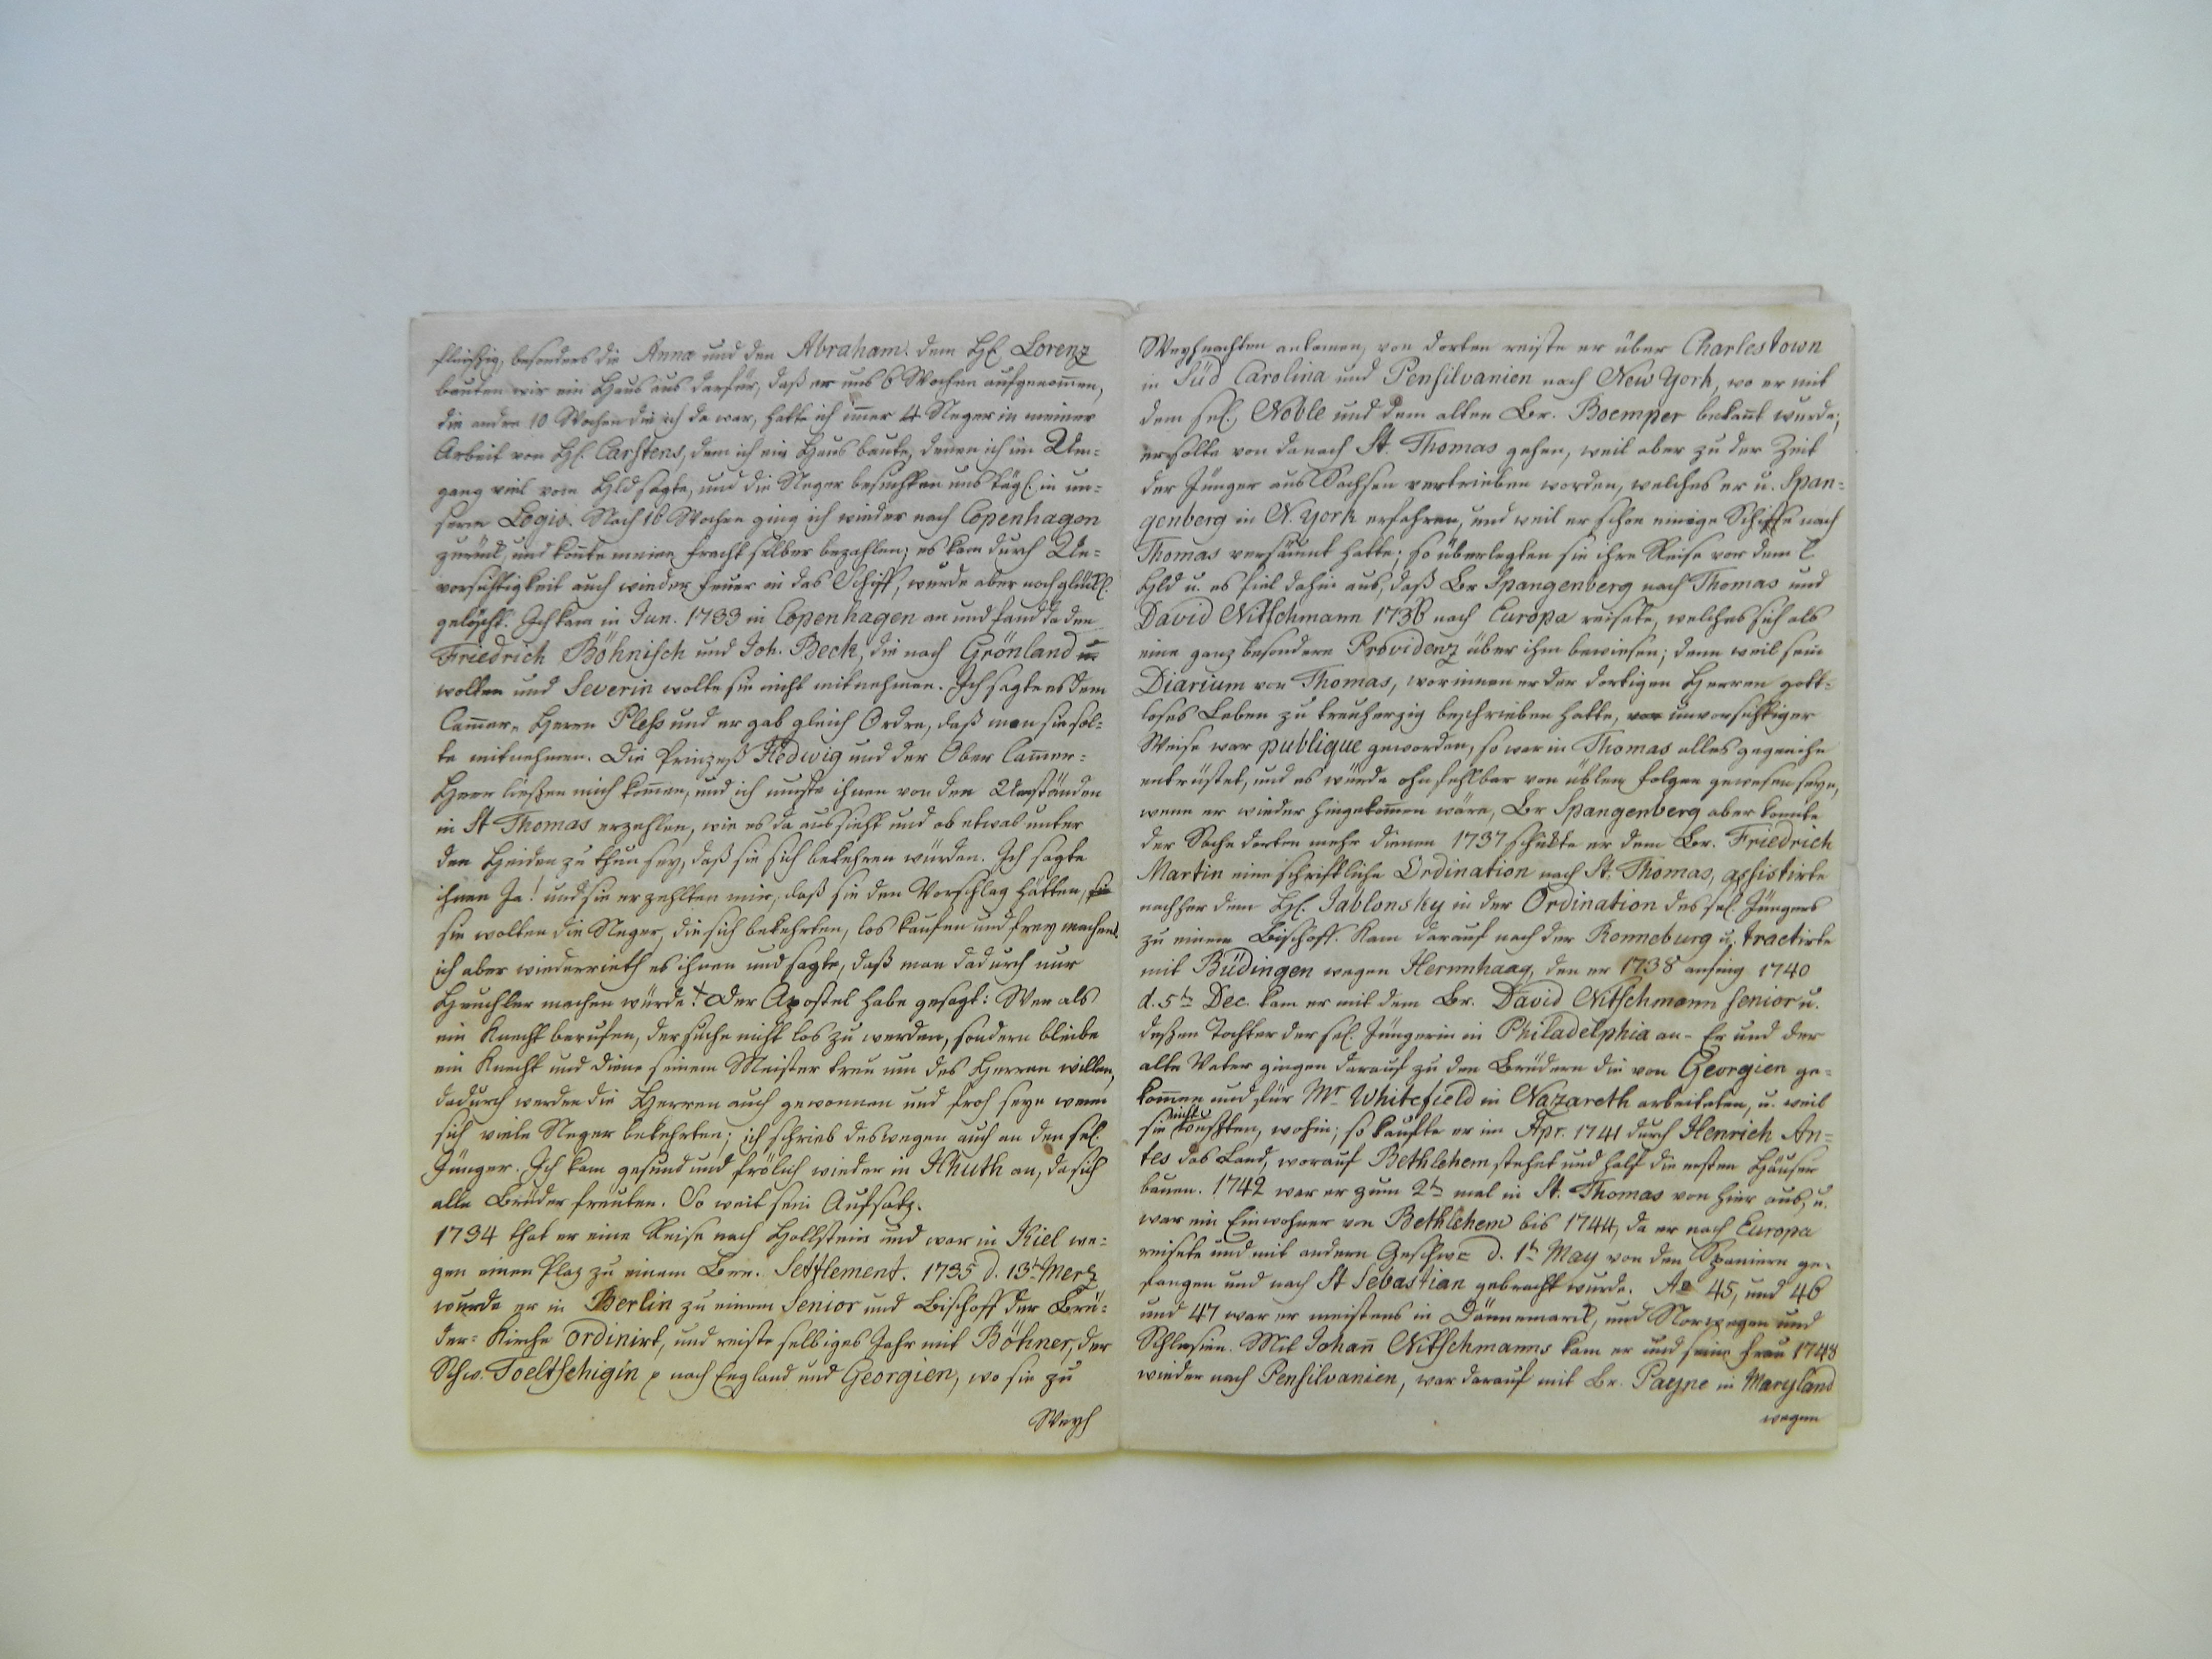 fleißig, besonders die Anna und den Abraham. dem H. Lorenz
bauten wir ein Haus aus darfür, daß er uns 6 Wochen aufgenom̄en,
die andre 10 Wochen die ich da war, hatte ich im̄er 4 Neger in meiner
Arbeit von H. Carstens, dem ich ein Haus baute, denen ich im Um-
gang viel vom Hld sagte, und die Neger besuchten uns tägl. in un-
serm Logis. Nach 16 Wochen ging ich wieder nach Copenhagen
zurück, und konte meine Fracht selber bezahlen; es kam durch Un-
vorsichtigkeit auch wieder Feuer in das Schiff, wurde aber noch glückl.
gelöscht. Ich kam in Jun. 1733 in Copenhagen an und fand da den
Friedrich Böhnisch und Joh. Beck, die nach Grönland
wolten und Severin wolte sie nicht mitnehmen. Ich sagte es dem
Cam̄er-Herrn Pleß und er gab gleich Ordre, daß man sie sol-
te mitnehmen. Die Prinzeß Hedwig und der Ober Cam̄er-
Herr ließen mich kom̄en, und ich mußte ihnen von den Umständen
in St Thomas erzehlen, wie es da aussieht und ob etwas unter
den Heiden zu thun sey, daß sie sich bekehren würden. Ich sagte
ihnen Ja! und sie erzehlten mir, daß sie den Vorschlag hätten, sie
sie wolten die Neger, die sich bekehrten, los kaufen und frey machen.
ich aber wiederrieth es ihnen und sagte, daß man dadurch nur
Heuchler machen würde! Der Apostel habe gesagt: Wer als
ein Knecht berufen, der suche nicht los zu werden, sondern bleibe
ein Knecht und diene seinem Meister treu um des Herren willen,
dadurch werden die Herren auch gewonnen und froh seyn wenn
sich viele Neger bekehrten; ich schrieb deswegen auch an den sel.
Jünger. Ich kam gesund und frölich wieder in Hhuth an, da sich
alle Brüder freuten. So weit sein Aufsatz.
1734 that er eine Reise nach Hollstein und war in Kiel we-
gen einen Plaz zu einem Brr. Settlement. 1735 d. 13t Merz
wurde er in Berlin zu einem Senior und Bischoff der Brü-
der-Kirche ordinirt, und reiste selbiges Jahr mit Böhner, der
Schw. Toeltschigin p nach England und Georgien, wo sie zu
Weyh
Weyhnachten ankamen, von dorten reiste er über Charlestown
in Süd Carolina und Pensilvanien nach New York, wo er mit
dem sel. Noble und dem alten Br. Boemper bekan̄t wurde;
er solte von da nach St. Thomas gehen, weil aber zu der Zeit
der Jünger aus Sachsen vertrieben worden, welches er u. Span-
genberg in N. York erfahren, und weil er schon einige Schiffe nach
Thomas versäumt hatte; so überlegten sie ihre Reise vor dem l.
Hld u. es fiel dahin aus, daß Br Spangenberg nach Thomas und
David Nitschmann 1736 nach Europa reisete, welches sich als
eine ganz besondere Providenz über ihm bewiesen; denn weil sein
Diarium von Thomas, worinnen er der dortigen Herren gott-
loses Leben zu treuherzig beschrieben hatte, unvorsichtiger
Weise war publique geworden, so war in Thomas alles gegen ihn
entrüstet, und es würde ohnfehlbar von üblen Folgen gewesen seyn,
wenn er wieder hingekom̄en wäre, Br Spangenberg aber konnte
der Sache dorten mehr dienen 1737 schickte er dem Br. Friedrich
Martin eine schriftliche Ordination nach St. Thomas, assistirte
nachher dem H. Jablonsky in der Ordination des sel. Jüngers
zu einem Bischoff. Kam darauf nach der Ronneburg u. tractirte
mit Büdingen wegen Herrnhaag, den er 1738 anfing 1740
d. 5t Dec. kam er mit dem Br. David Nitschmann senior u.
deßen Tochter der sel. Jüngerin in Philadelphia an - Er und der
alte Vater gingen darauf zu den Brüdern die von Georgien ge-
kom̄en und für Mr Whitefield in Nazareth arbeiteten, u. weil
sie nicht wußten, wohin; so kaufte er im Apr. 1741 durch Henrich An-
tes das Land, worauf Bethlehem stehet und half die ersten Häuser
bauen. 1742 war er zum 2t mal in St. Thomas von hier aus, u.
war ein Einwohner von Bethlehem bis 1744, da er nach Europa
reisete und mit andern Geschw. d. 1t May von den Spaniern ge-
fangen und nach St Sebastian gebracht wurde. Ao 45, und 46
und 47 war er meistens in Dännemarck, und Norwegen und
Schlesien. Mit Johan̄ Nitschmanns kam er und seine Frau 1748
wieder nach Pensilvanien, war darauf mit Br. Payne in Maryland
wegen